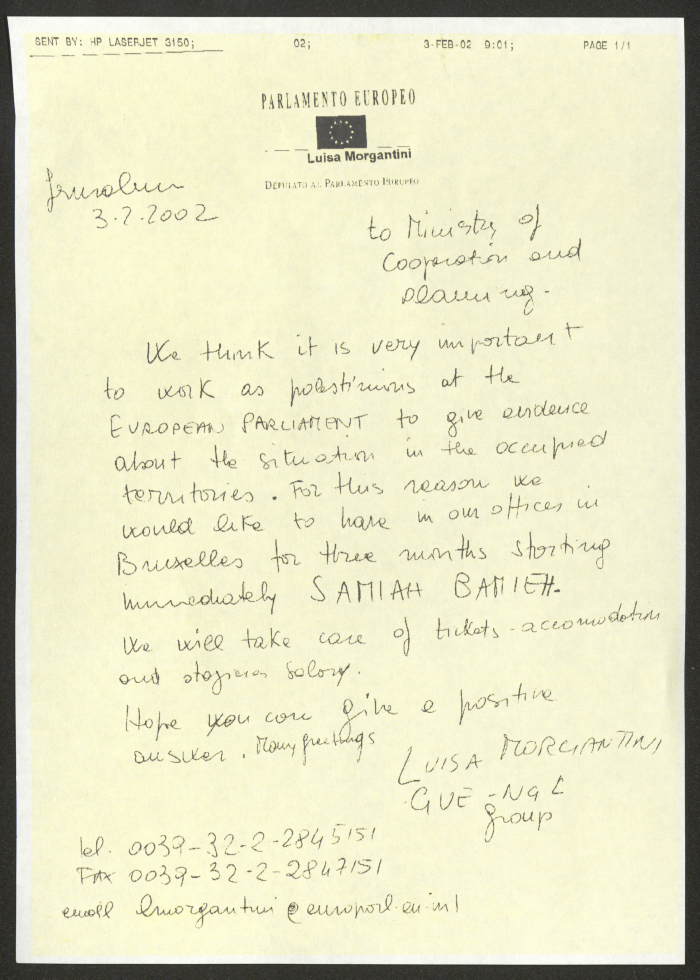 SENT BY: HP LASERJET 3150; 02; 3-FEB-02 9:01; PAGE 1/1
PARLAMENTO EUROPEO
Luisa Morgantini
DEPUTATO AL PARLAMENTO EUROPEO
Jerusalem
3.2.2002
to Ministry of
Cooperation and
planning.
We think it is very important
to work as palestinians at the
EUROPEAN PARLIAMENT to give evidence
about the situation in the occupied
territories. For this reason we
would like to have in our offices in
Bruxelles for three months starting
immediately SAMIAH BAMIEH.
We will take care of tickets - accomodation
and stagiaires salary.
Hope you can give a positive
answer. Many greetings
LUISA MORGANTINI
GUE - NGL
group
tel. 0039-32-2-2845151
FAX 0039-32-2-2847151
email lmorgantini@europarl.eu.int